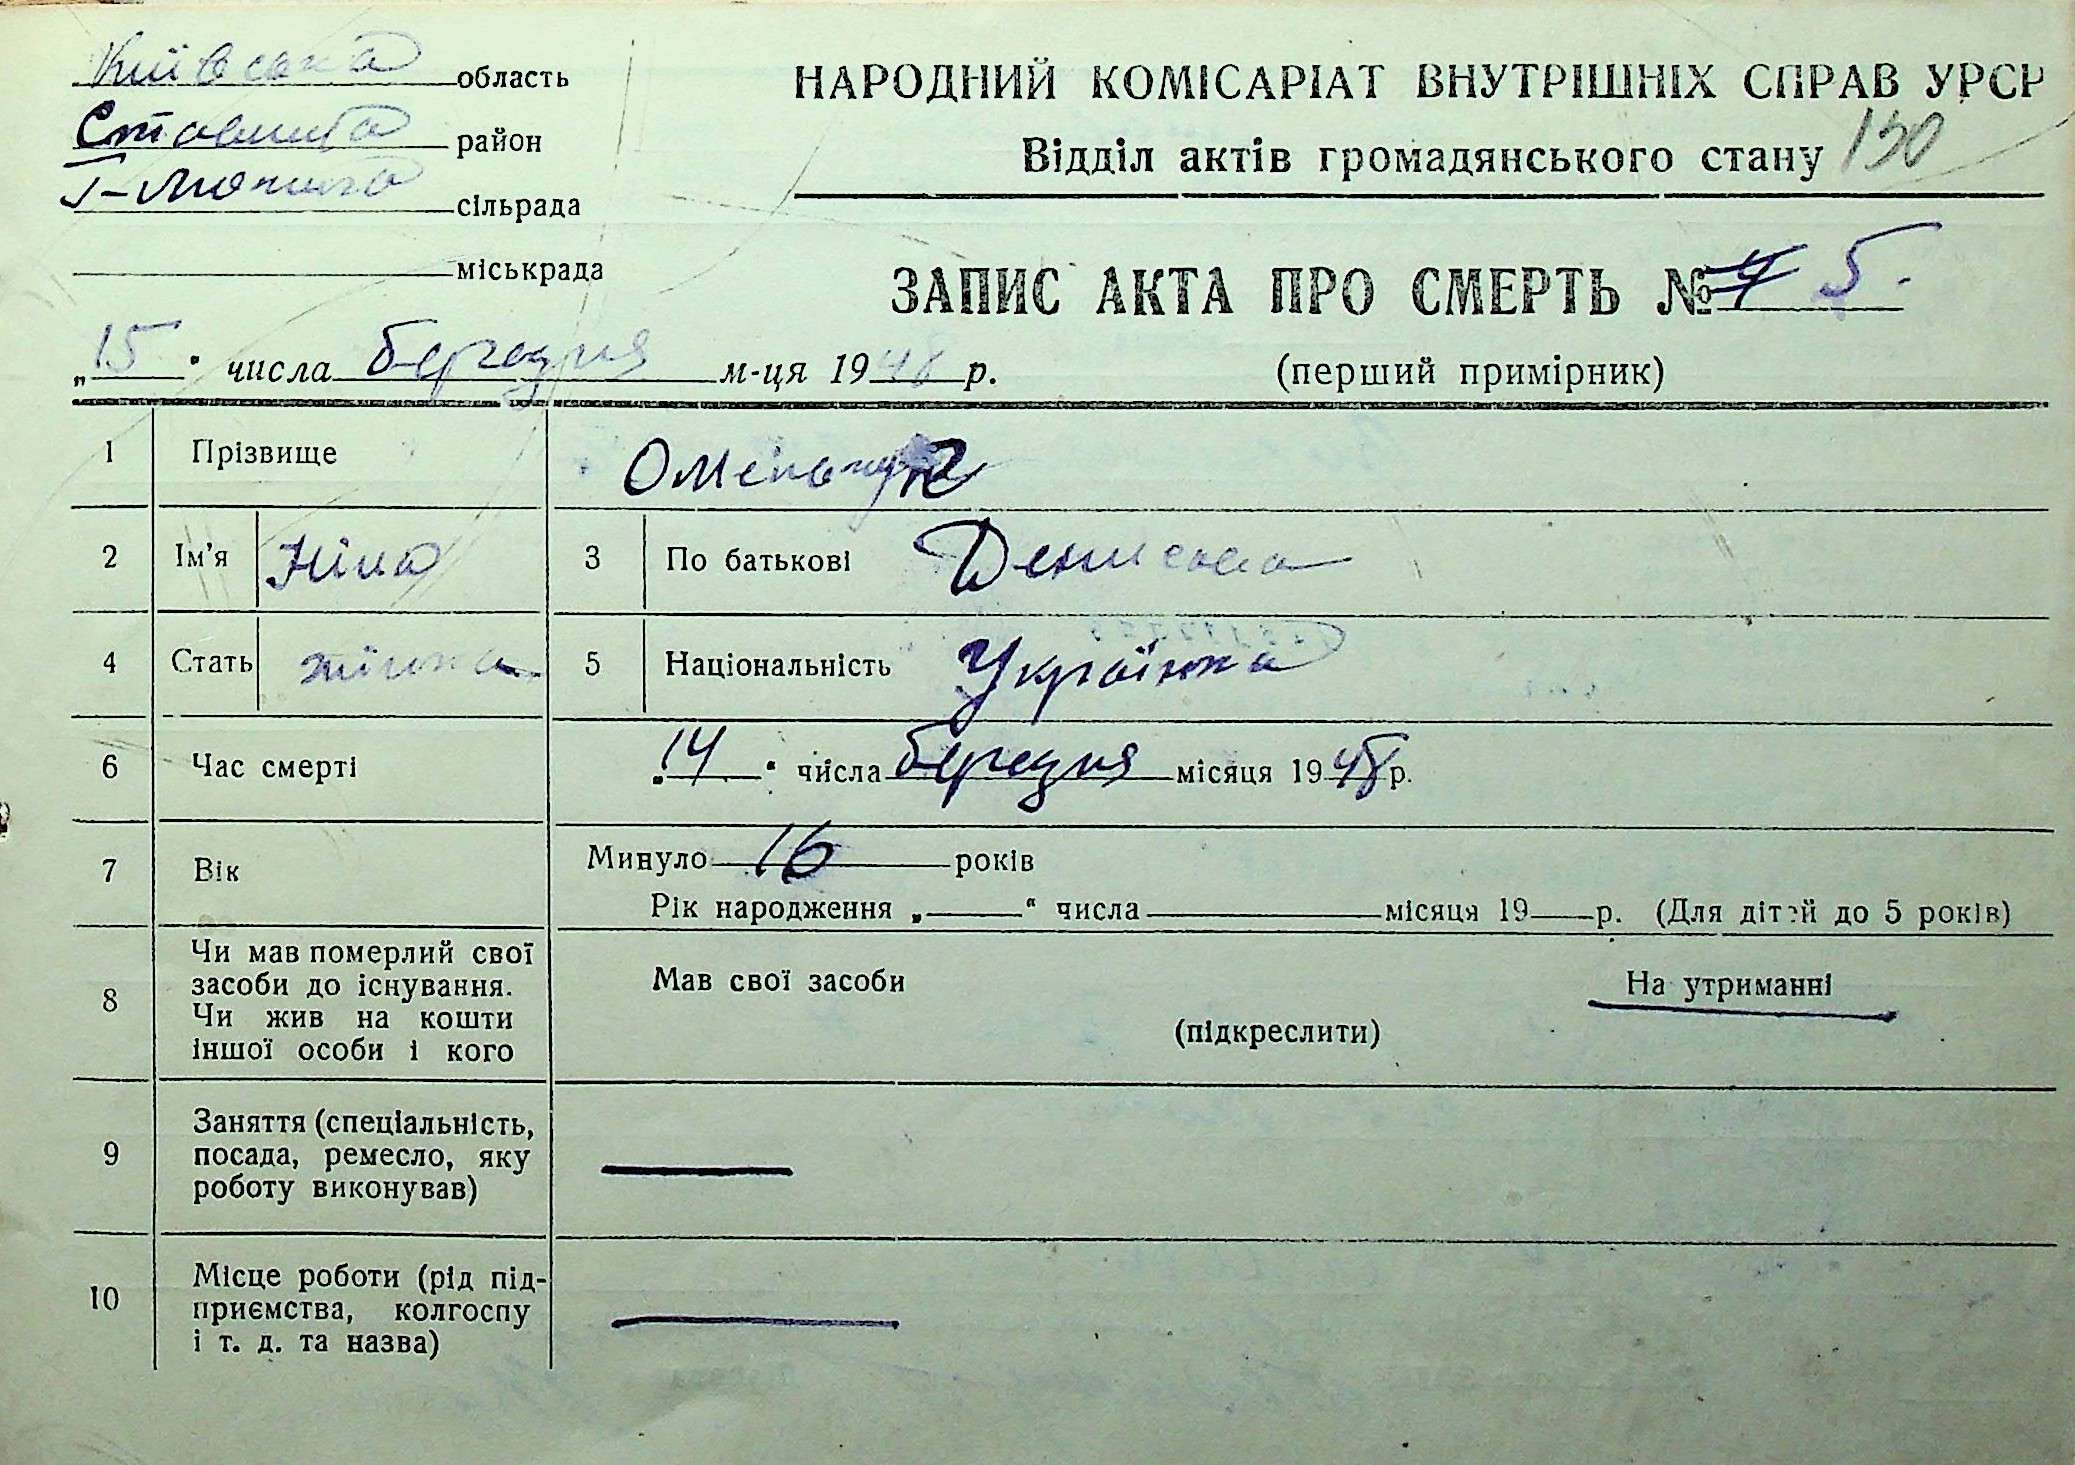 Київська область
НАРОДНИЙ КОМІСАРІАТ ВНУТРІШНІХ СПРАВ УРСР
район
Відділ актів громадянського стану 130
сільрада
міськрада
ЗАПИС АКТА ПРО СМЕРТЬ № 5.
„15“ числа березня м-ця 1948 р.
(перший примірник)
1 Прізвище
2 Ім'я Ніна 3 По батькові Денисовна
4 Стать жінка 5 Національність Українка
6 Час смерті „14“ числа березня місяця 1948 р.
7 Вік Минуло 16 років
Рік народження „ “ числа місяця 19 р. (Для дітей до 5 років)
8 Чи мав померлий свої
засоби до існування.
Чи жив на кошти
іншої особи і кого
Мав свої засоби На утриманні
(підкреслити)
9 Заняття (спеціальність,
посада, ремесло, яку
роботу виконував)
10 Місце роботи (рід під-
приємства, колгоспу
і т. д. та назва)